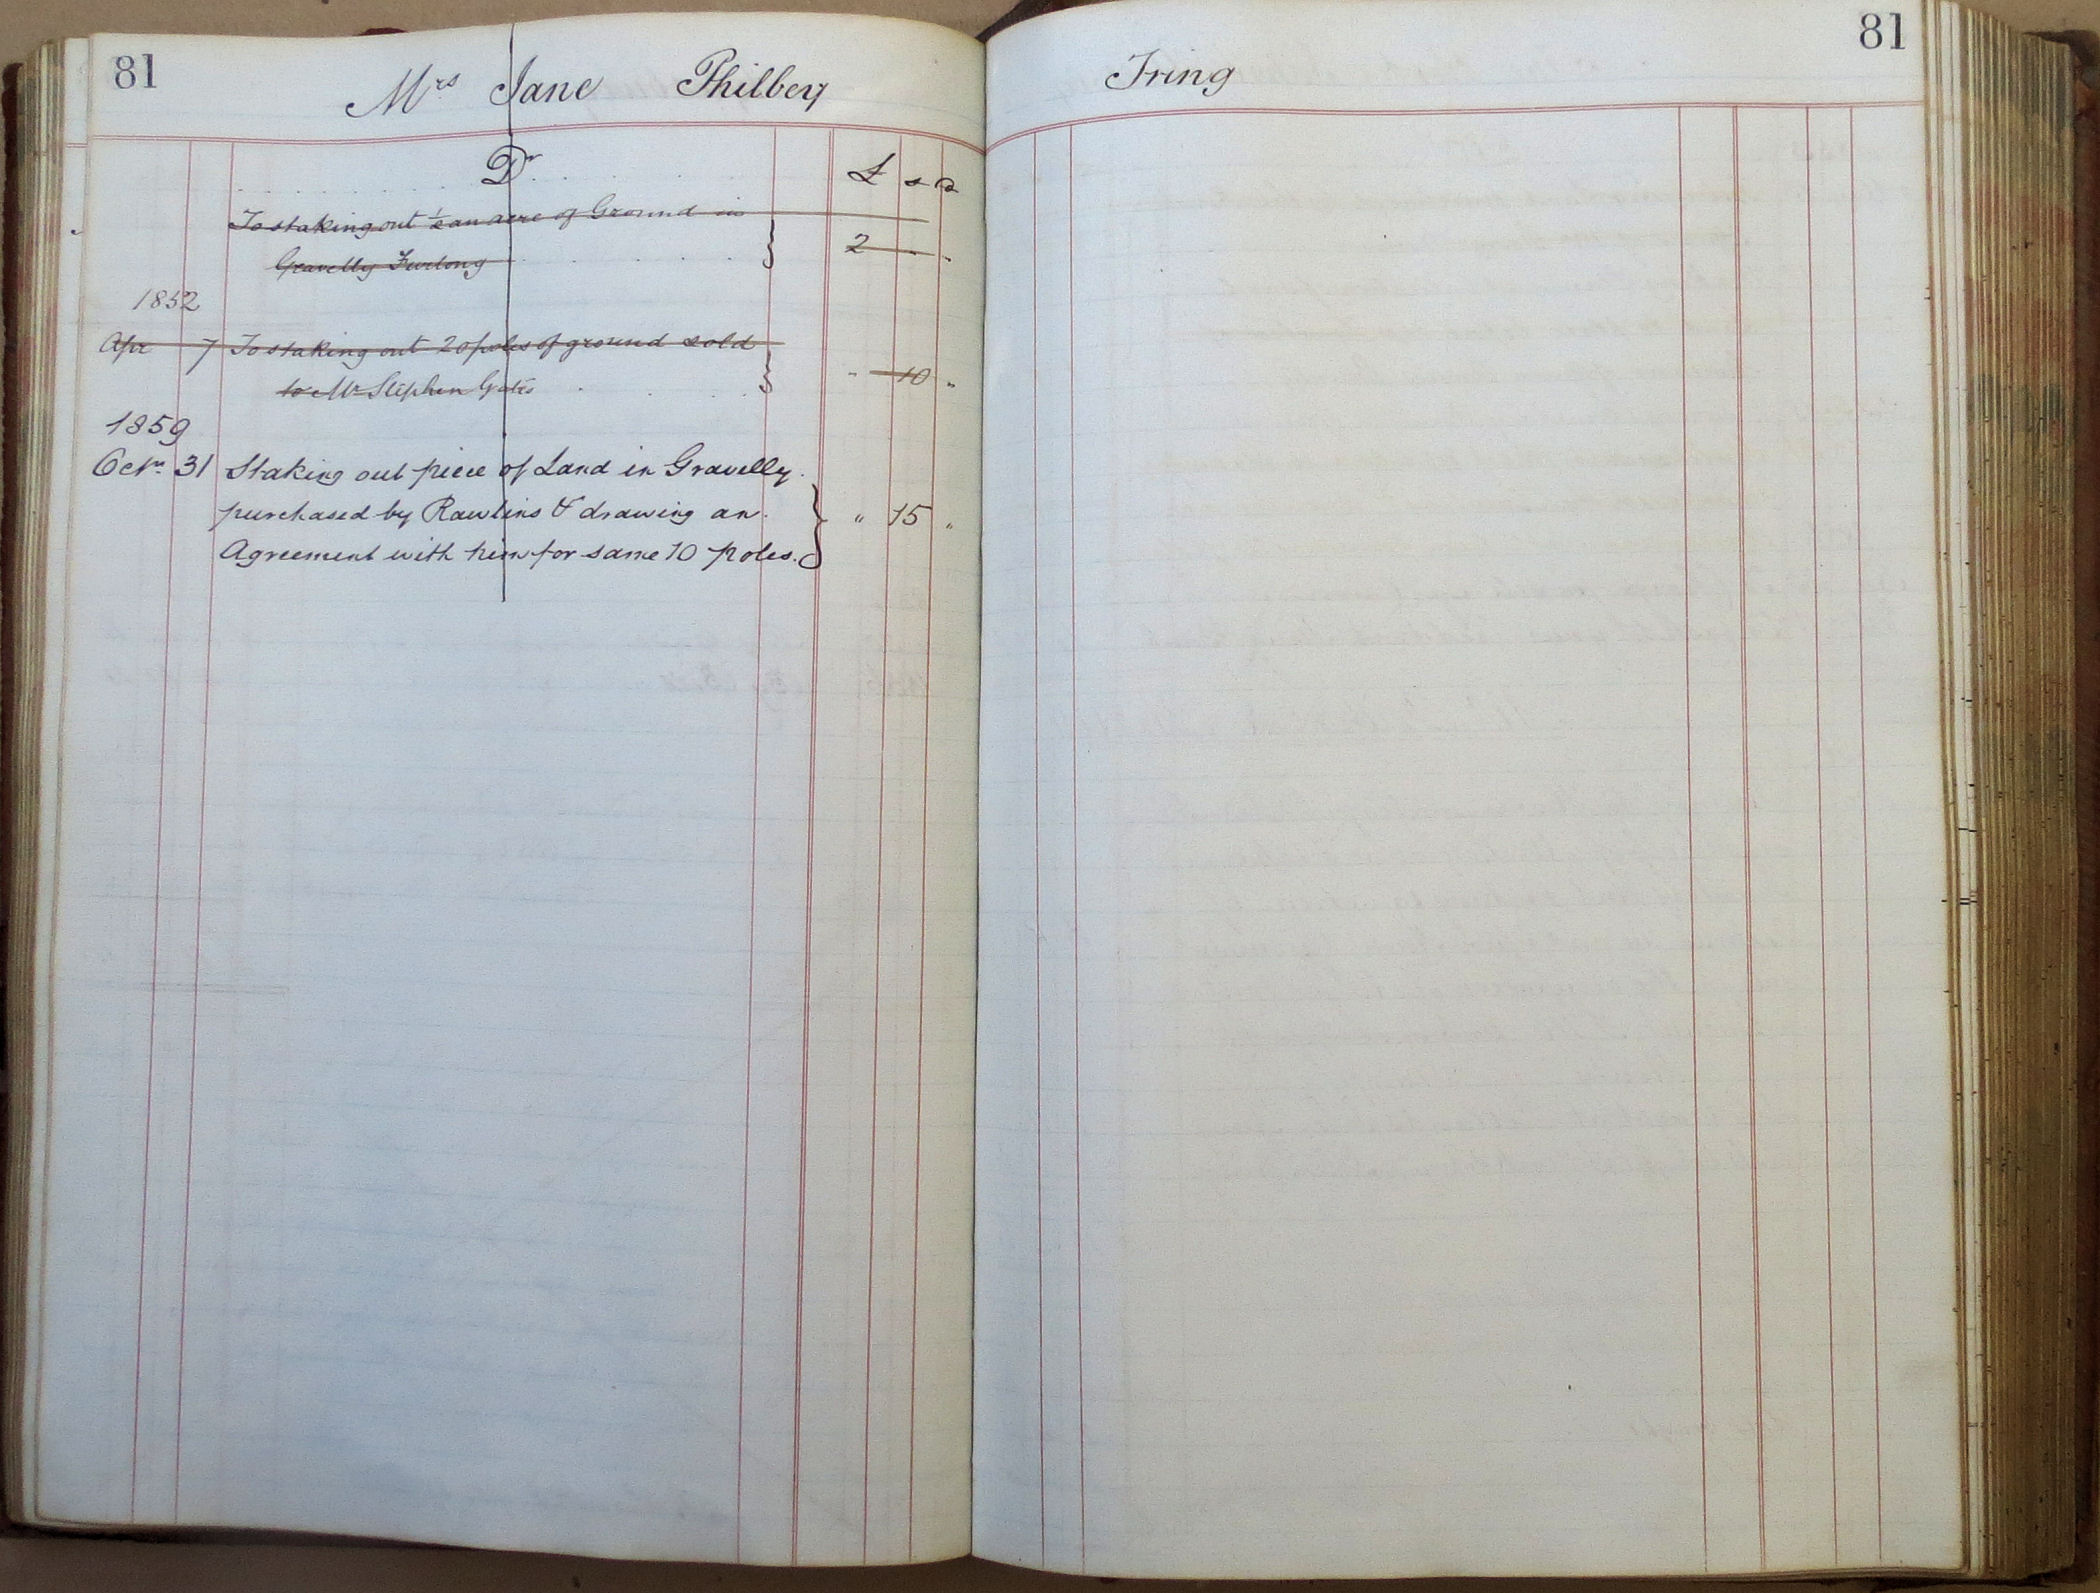 81
Mrs Jane Philbey
Tring
81
Dr
£ s d
To staking out 1/2 an acre of Ground in
Gravelly Furlong
2 - "
1852
Apr 7 To staking out 20 poles of ground sold
to Mr Stephen Gates
" 10 "
1859
Octr 31 Staking out piece of Land in Gravelly
purchased by Rawlins & drawing an
Agreement with him for same 10 poles.
" 15 "